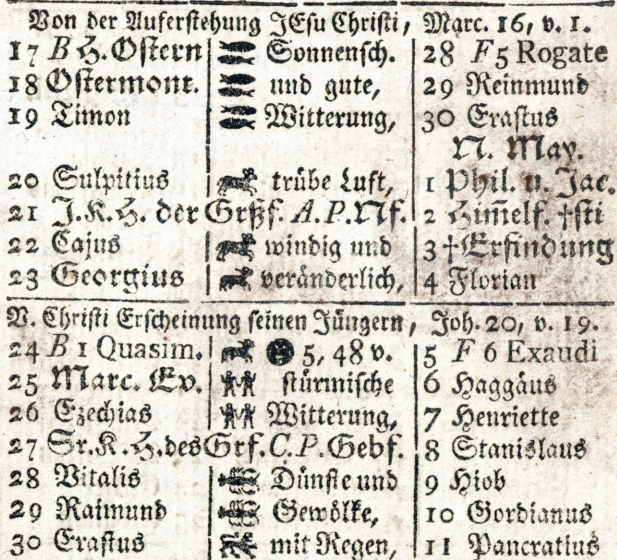 Von der Auferstehung JEsu Christi, Marc. 16, v. 1.
17 B H. Ostern Sonnensch. 28 F 5 Rogate
18 Ostermont. und gute, 29 Reinmund
19 Timon Witterung, 30 Erastus
N. May.
20 Sulpitius trübe Luft, 1 Phil. u. Jac.
21 J. K. H. der Grßf. A. P. Nf. 2 Him̃elf. †sti
22 Cajus windig und 3 †Erfindung
23 Georgius veränderlich, 4 Florian
V. Christi Erscheinung seinen Jüngern, Joh. 20, v. 19.
24 B 1 Quasim. 5, 48 v. 5 F 6 Exaudi
25 Marc. Ev. stürmische 6 Haggäus
26 Ezechias Witterung, 7 Henriette
27 Sr. K. H. des Grf. C. P. Gebf. 8 Stanislaus
28 Vitalis Dünste und 9 Hiob
29 Raimund Gewölke, 10 Gordianus
30 Erastus mit Regen, 11 Pancratius